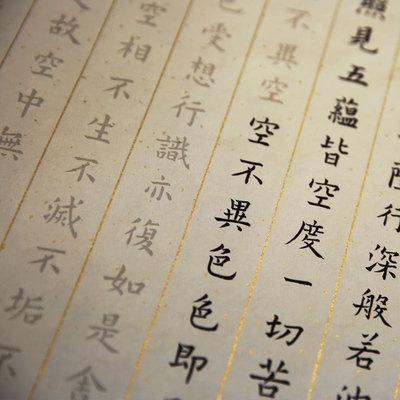 薩行深般若波
照見五蘊皆空度一切苦
不異空空不異色色即
色受想行識亦復如是舍
空相不生不滅不垢不
故空中無